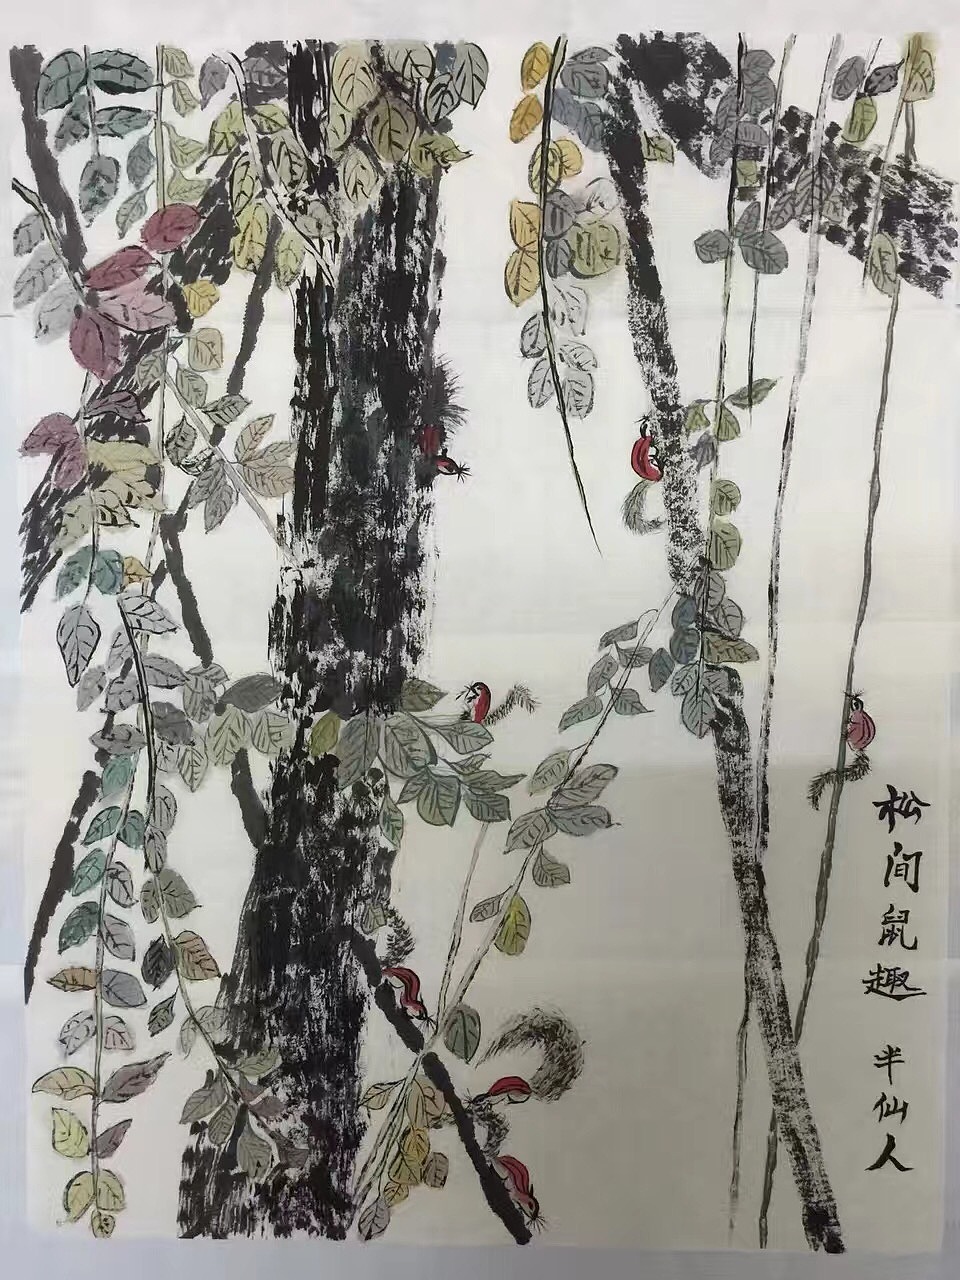 松间鼠趣 半仙人